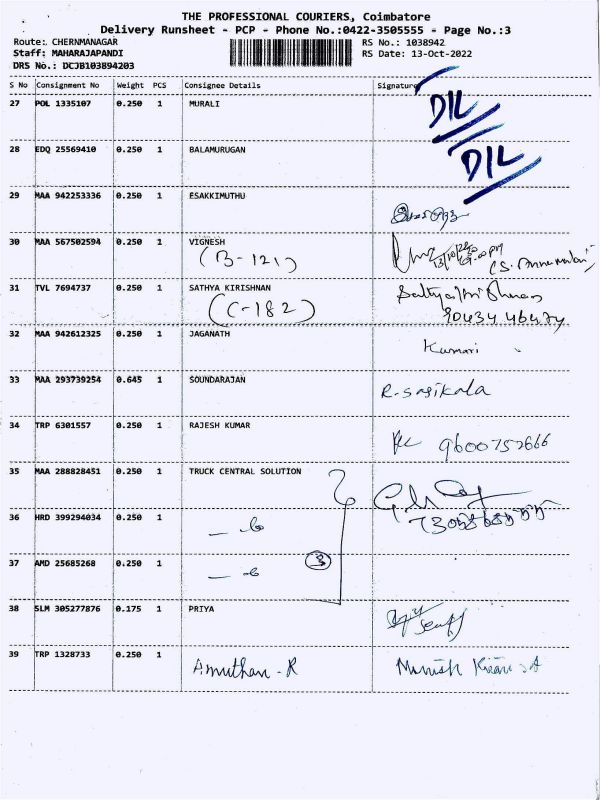 THE PROFESSIONAL COURIERS, Coimbatore
Delivery Runsheet - PCP - Phone No.:0422-3505555 - Page No.:3
Route: CHERNMANAGAR RS No.: 1038942
Staff: MAHARAJAPANDI RS Date: 13-Oct-2022
DRS No.: DCJB103894203
S No Consignment No Weight PCS Consignee Details Signature
27 POL 1335107 0.250 1 MURALI DIL
28 EDQ 25569410 0.250 1 BALAMURUGAN DIL
29 MAA 942253336 0.250 1 ESAKKIMUTHU
30 MAA 567502594 0.250 1 VIGNESH
(B-121)
31 TVL 7694737 0.250 1 SATHYA KIRISHNAN
(C-182)
32 MAA 942612325 0.250 1 JAGANATH
Kumari
33 MAA 293739254 0.645 1 SOUNDARAJAN
R.Sasikala
34 TRP 6301557 0.250 1 RAJESH KUMAR
9600752666
35 MAA 288828451 0.250 1 TRUCK CENTRAL SOLUTION
36 HRD 399294034 0.250 1
37 AMD 25685268 0.250 1 3
38 SLM 305277876 0.175 1 PRIYA
39 TRP 1328733 0.250 1
Amuthan - R